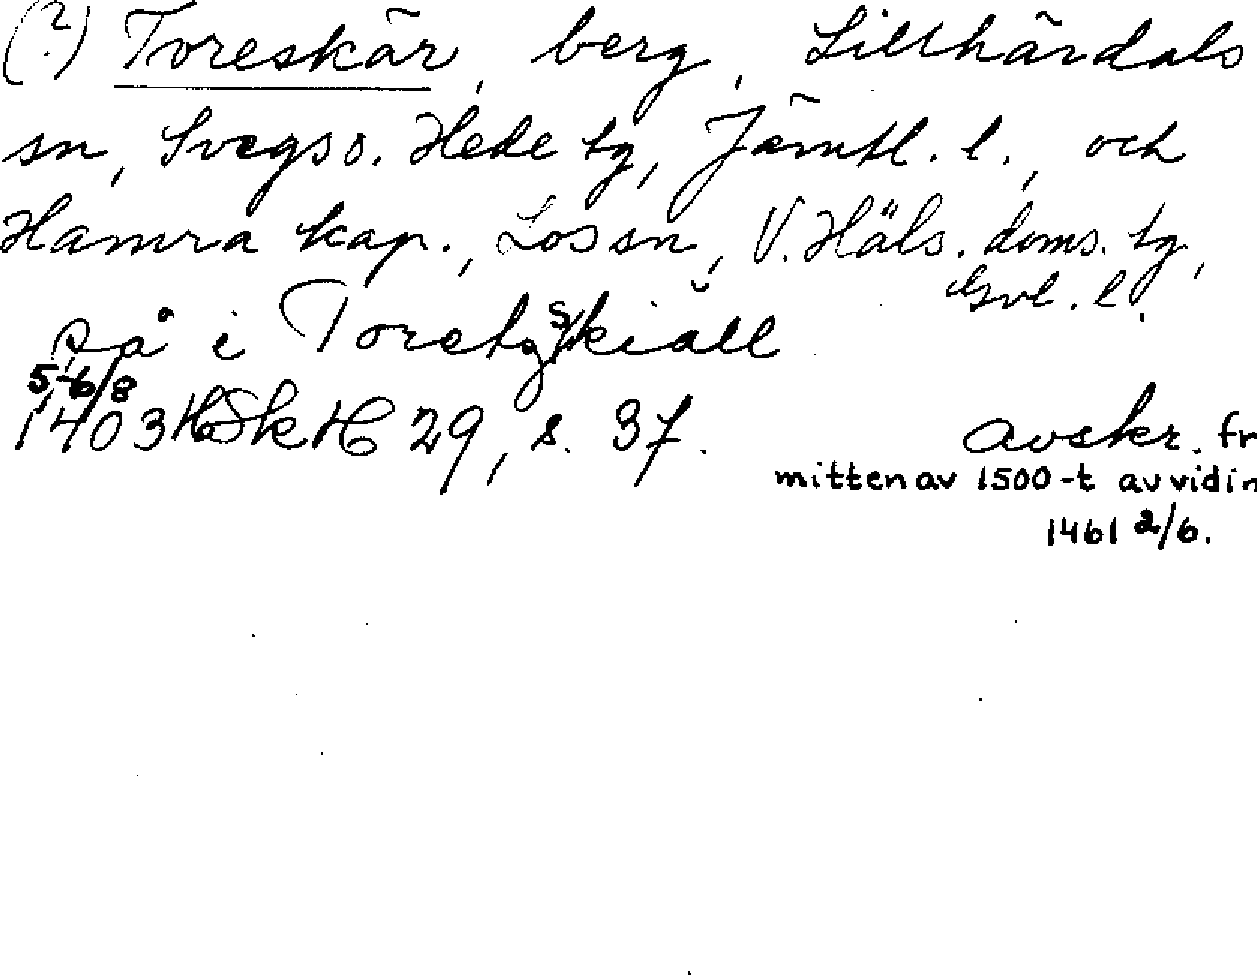 (?) Toreskär, berg, Lillhärdals
sn, Svegs o. Hede tg, Jämtl. l., och
Hamra kap., Los sn, V. Häls. doms. tg,
Gvl. l.
på i Toretzskiäll
5-6/8
1403 HSH 29, s. 37. avskr. fr
mitten av 1500-t av vidim
1461 2/6.